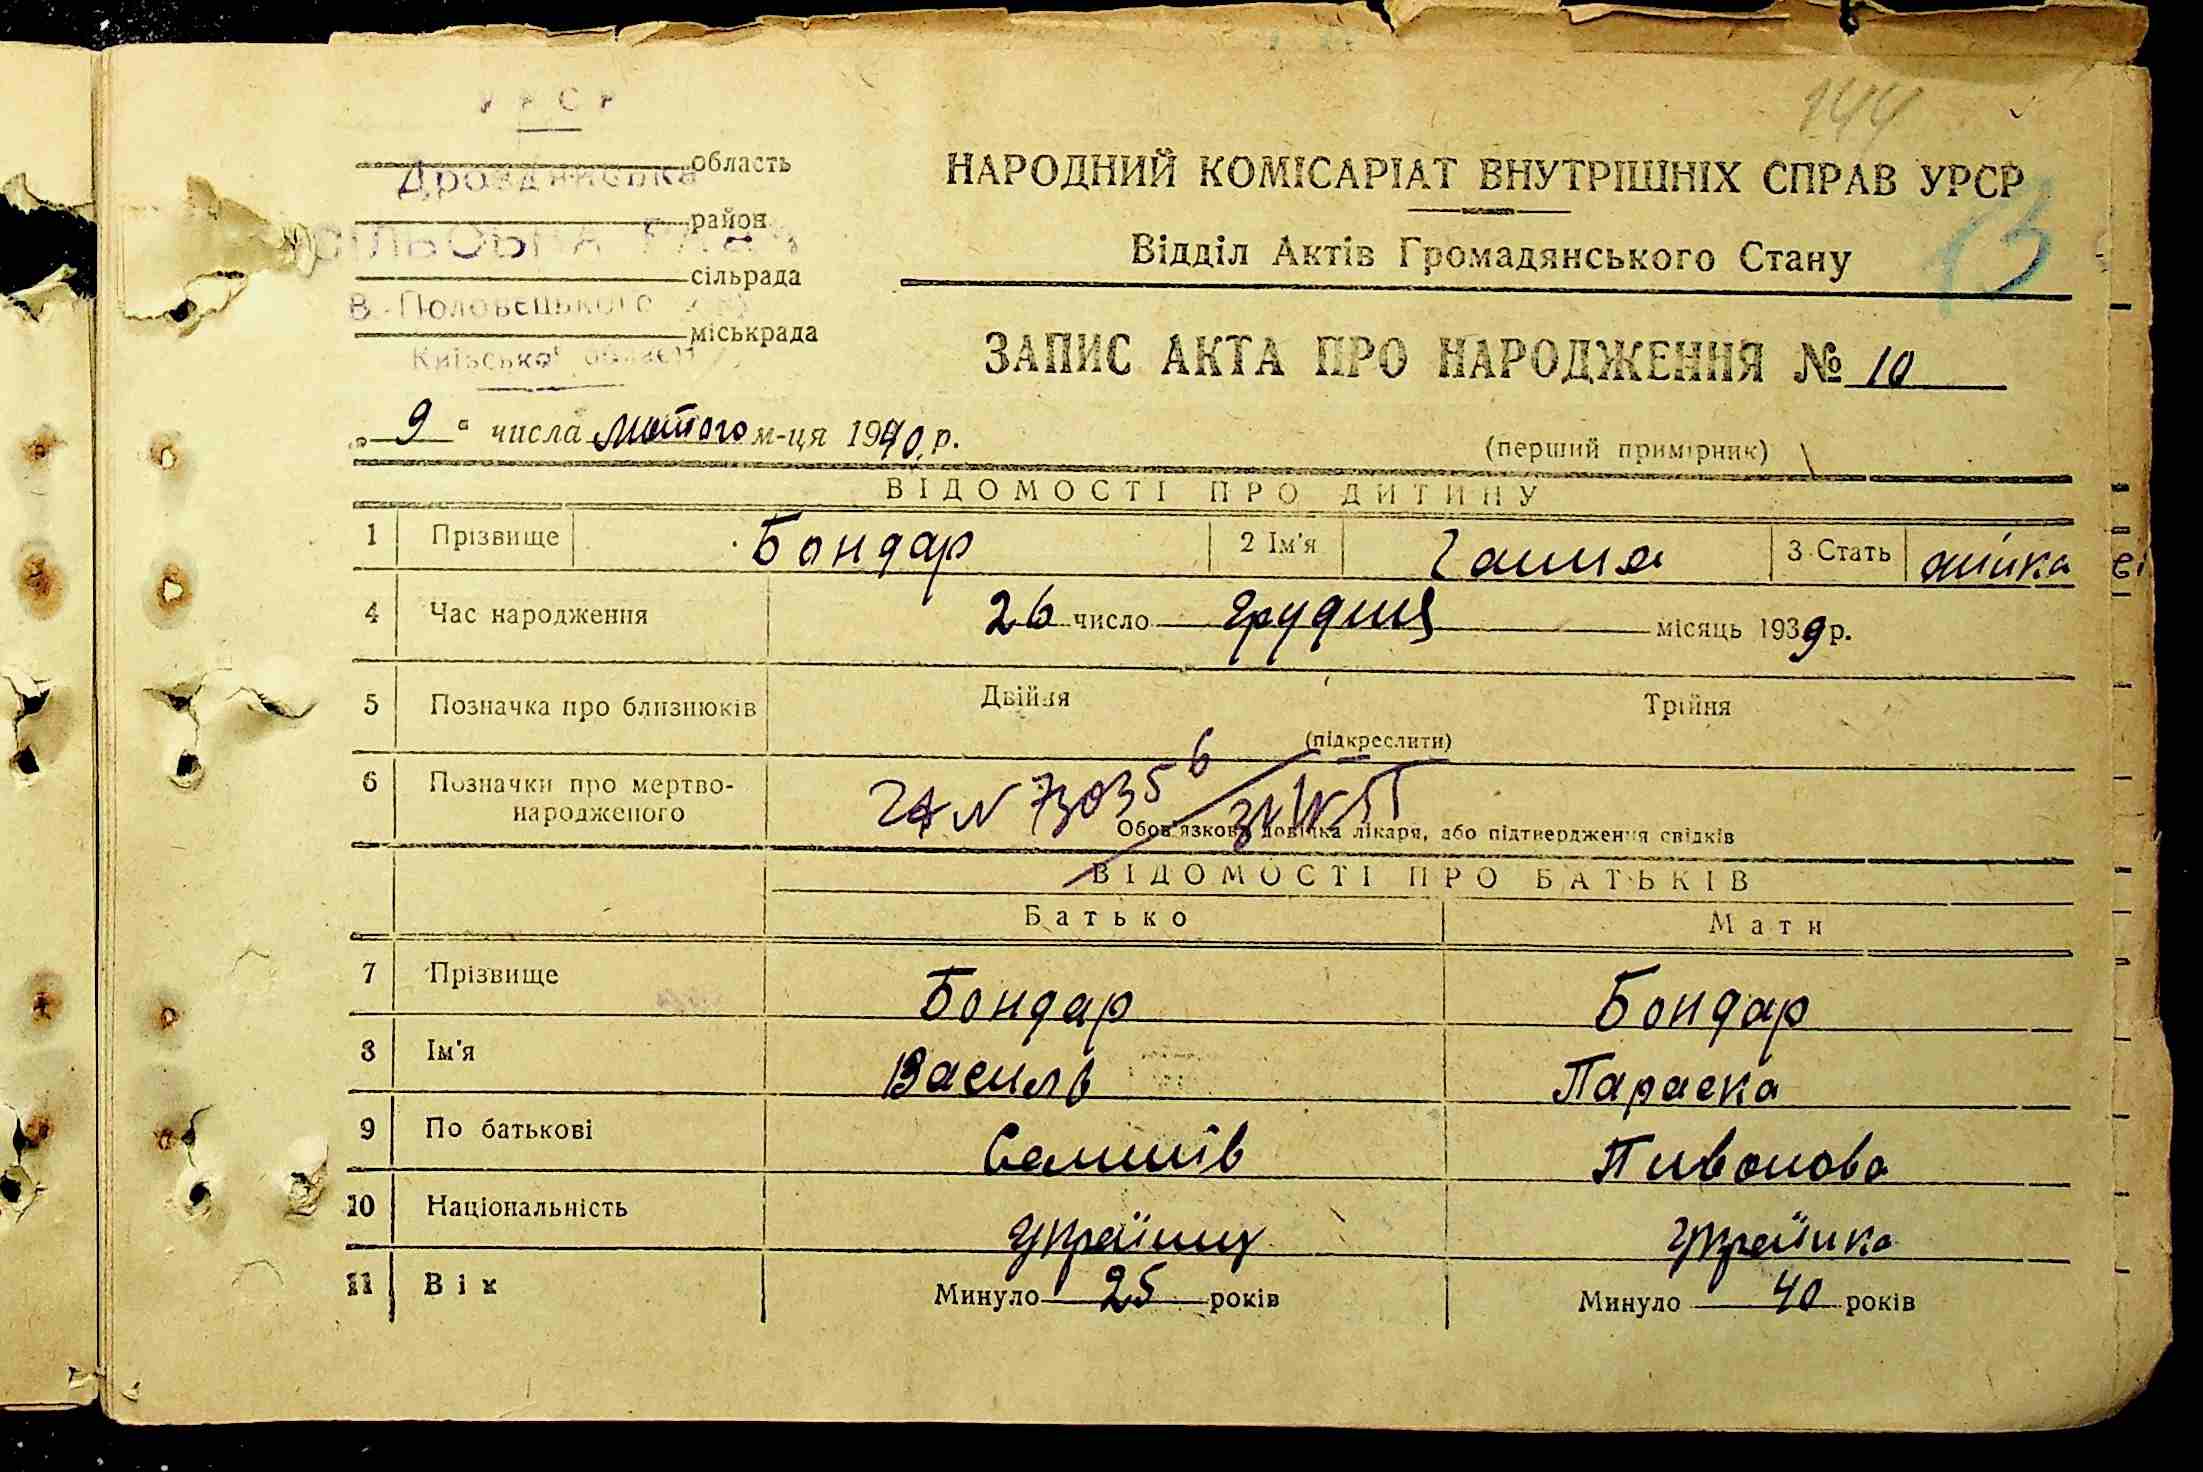 УРСР
144
область
Дрозднинська
НАРОДНИЙ КОМІСАРІАТ ВНУТРІШНІХ СПРАВ УРСР
район
СІЛЬСЬКА РАДА
13
Відділ Актів Громадянського Стану
сільрада
В-Половецького р-ну
міськрада
Київської області
ЗАПИС АКТА ПРО НАРОДЖЕННЯ № 10
„ 9 " числа лютого м-ця 1940 р.
(перший примірник)
ВІДОМОСТІ ПРО ДИТИНУ
1 Прізвище Бондар 2 Ім'я Ганна 3 Стать жінка
4 Час народження 26 число грудня місяць 1939 р.
5 Позначка про близнюків Двійня Трійня
(підкреслити)
6 Позначки про мертво-
народженого
N 730356
Обов'язкова довідка лікаря, або підтвердження свідків
ВІДОМОСТІ ПРО БАТЬКІВ
Батько Мати
7 Прізвище Бондар Бондар
8 Ім'я Василь Параска
9 По батькові Пивонова
10 Національність українц українка
11 Вік Минуло 25 років Минуло 40 років